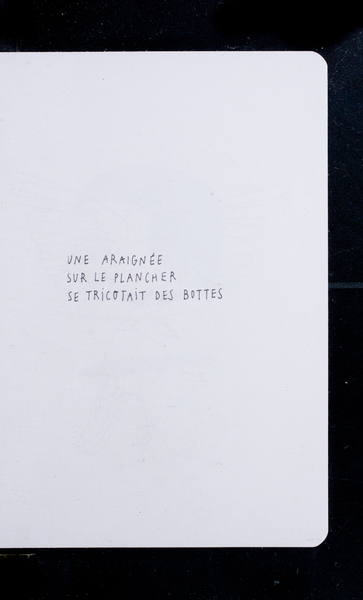 UNE ARAIGNÉE
SUR LE PLANCHER
SE TRICOTAIT DES BOTTES